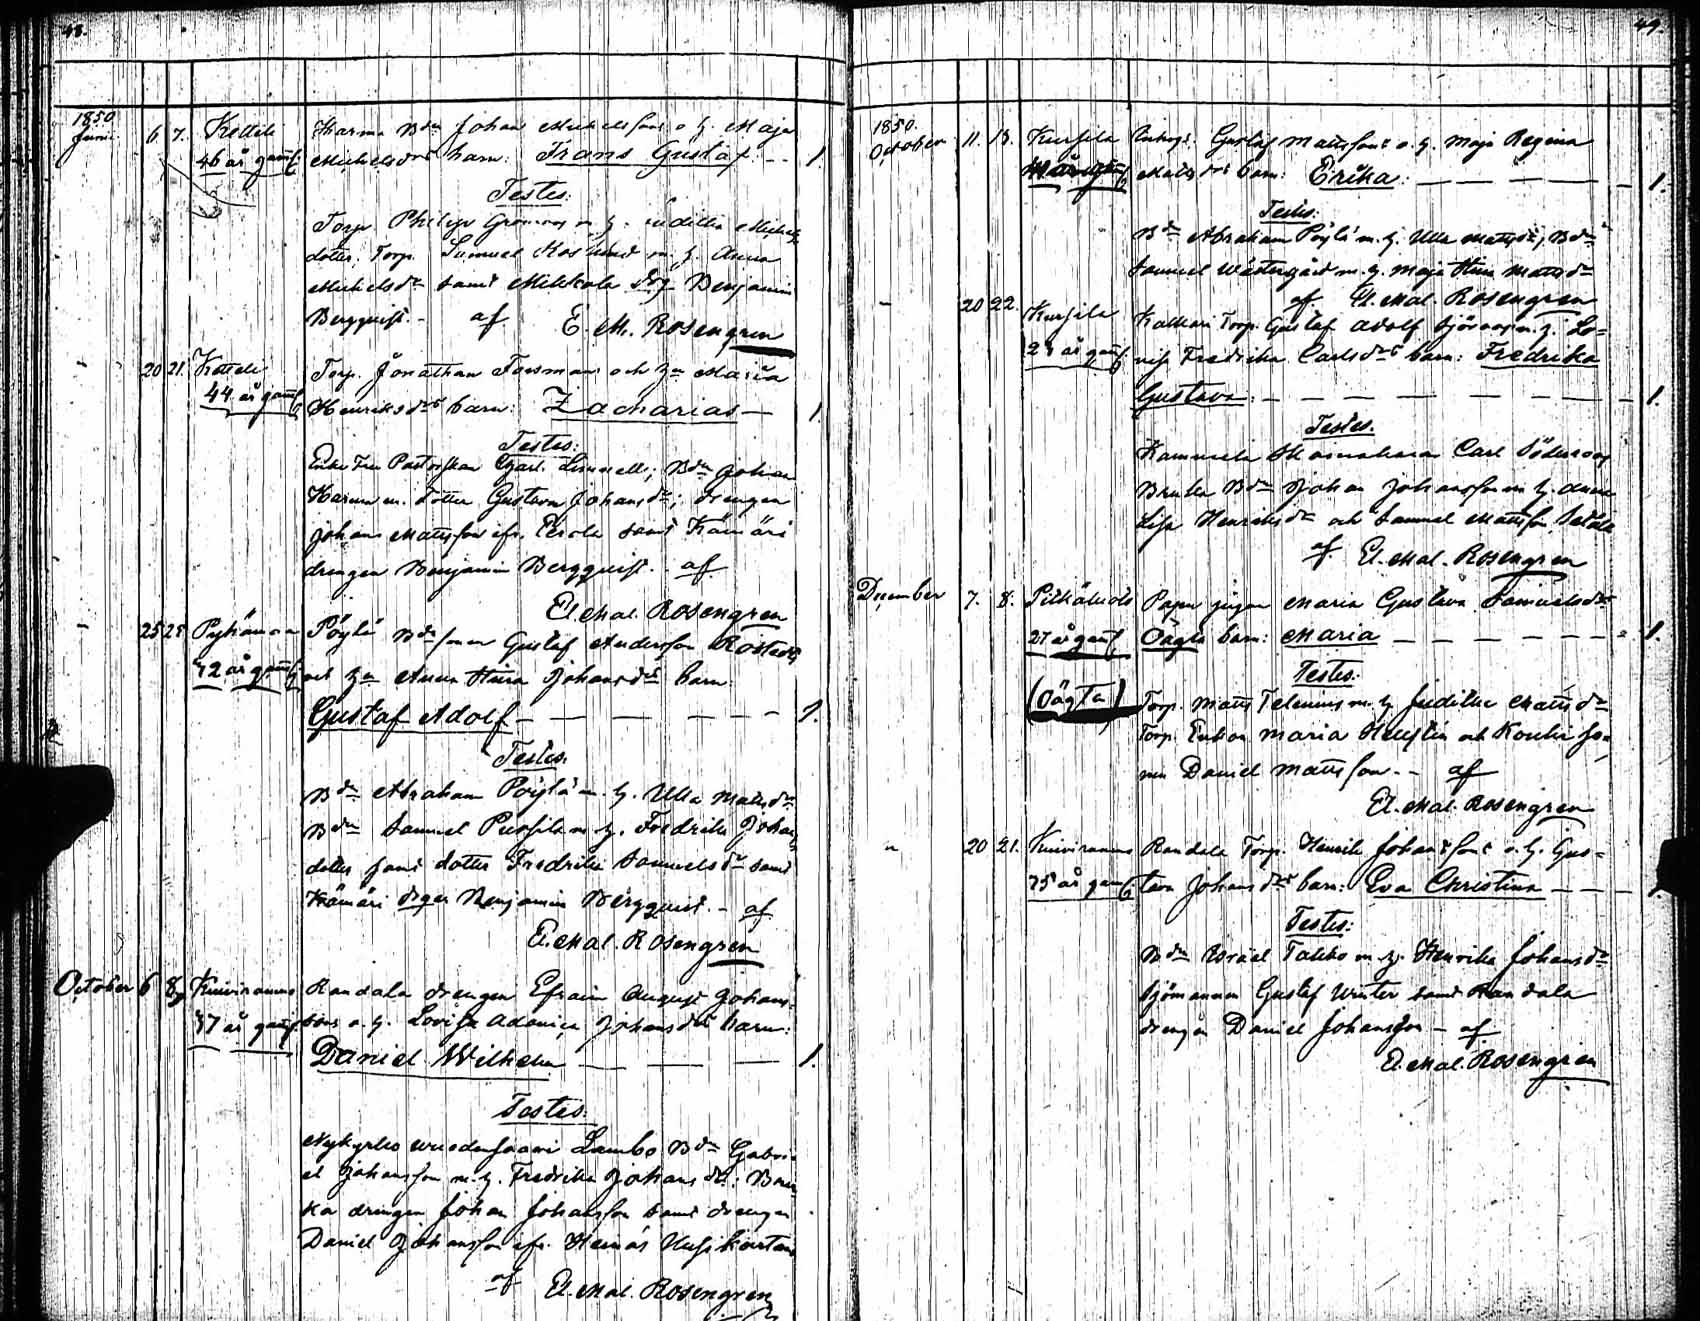 48.
1850
Juni
6 7. Kettele
46 år gam.
Karma Bdn Johan Michelsfons o. h. Maja
Michelsdrs barn: Frans Gustaf. - - 1
Testes:
Torp. Philip Grönroos m. h. Juditha Michels
dotter, Torp. Samuel Roslund m. h. Anna
Michelsdr samt Mikkola drg Benjamin
Bergquist. - af
E. M. Rosengren
- 20 21. Kettele
44 år gam.
Torp. Jonathan Forsman och hu Maria
Henriksdrs barn: Zacharias — 1.
Testes:
Enke Fru Pastorskan Charl. Limnell; Bdn Johan
Karma m. dotter Gustava Johansdr; drengen
Johans Mattsson ifr. Perola samt Kämäri
drengen Benjamin Bergquist. af
El. Mal. Rosengren
- 25 25 Pyhäranda
42 år gam.
Pöylä Bdsonen Gustaf Andersson Rostedts
och hu Anna Stina Johansdrs barn:
Gustaf Adolf - — — — - 1.
Testes.
Bdn Abraham Pöylä m. h. Ulla Matsdr
Bdn Samuel Pursila m. h. Fredrika Johans
dotter samt dotter Fredrika Samuelsdr samt
Kämäri drgen Benjamin Bergquist. - af
El. Mal. Rosengren
October 6 8, Kuivirannas
37 år gam.
Randala drengen Efraim August Johans-
sons o. h. Lovisa Adonica Johansdrs barn:
Daniel Wilhelm — — — 1.
Testes:
Nykyrko Lambo Bdn Gabri-
el Johansson m. h. Fredrika Johansdr;
ka drengen Johan Johansson samt drengen
Daniel Johansson ifr.
af El. Mal. Rosengren
49.
1850.
October 11. 13. Kursila
Gustaf Mattssons o. h. Maja Regina
Matsdrs barn: Erika: — — — — 1.
Testes:
Bdn Abraham Pöylä m. h. Ulla Mattsdr, Bdn
Samuel Westergård m. h. Maja Stina Mattsdr
af El. Mal. Rosengren
- 20 22. Kursila
27 år gam.
Kalhari Torp. Gustaf Adolf Sjöroos m. h. Lo=
visa Fredrika Carlsdrs barn: Fredrika
Gustava: - — — — — 1.
Testes.
Kammela Skomakaren Carl Söderroos
Bruka Bdn Johan Johansson m. h. Anna
Lisa Henriksdr och Samuel Mattsson Setälä
af El. Mal. Rosengren
December 7. 8. Pitkäluoto
27 år gam.
(Oägta)
Papu pigan Maria Gustava Samuelsdrs
Oägta barn: Maria — — — — 1.
Testes:
Torp. Matts Telenius m. h. Juditha Mattsdr
Torp. Enkan Maria Hellstén och
nen Daniel Mattsson. - af
El. Mal. Rosengren
" 20 21. Kuivirannas
25 år gam.
Randala Torp. Henrik Johanssons o. h. Gus=
tava Johansdrs barn: Eva Christina — — 1.
Testes:
Bdn Israël Takko m. h. Henrika Johansdr
Sjömannen Gustaf Winter samt Randala
drengen Daniel Johansson - af
El. Mal. Rosengren